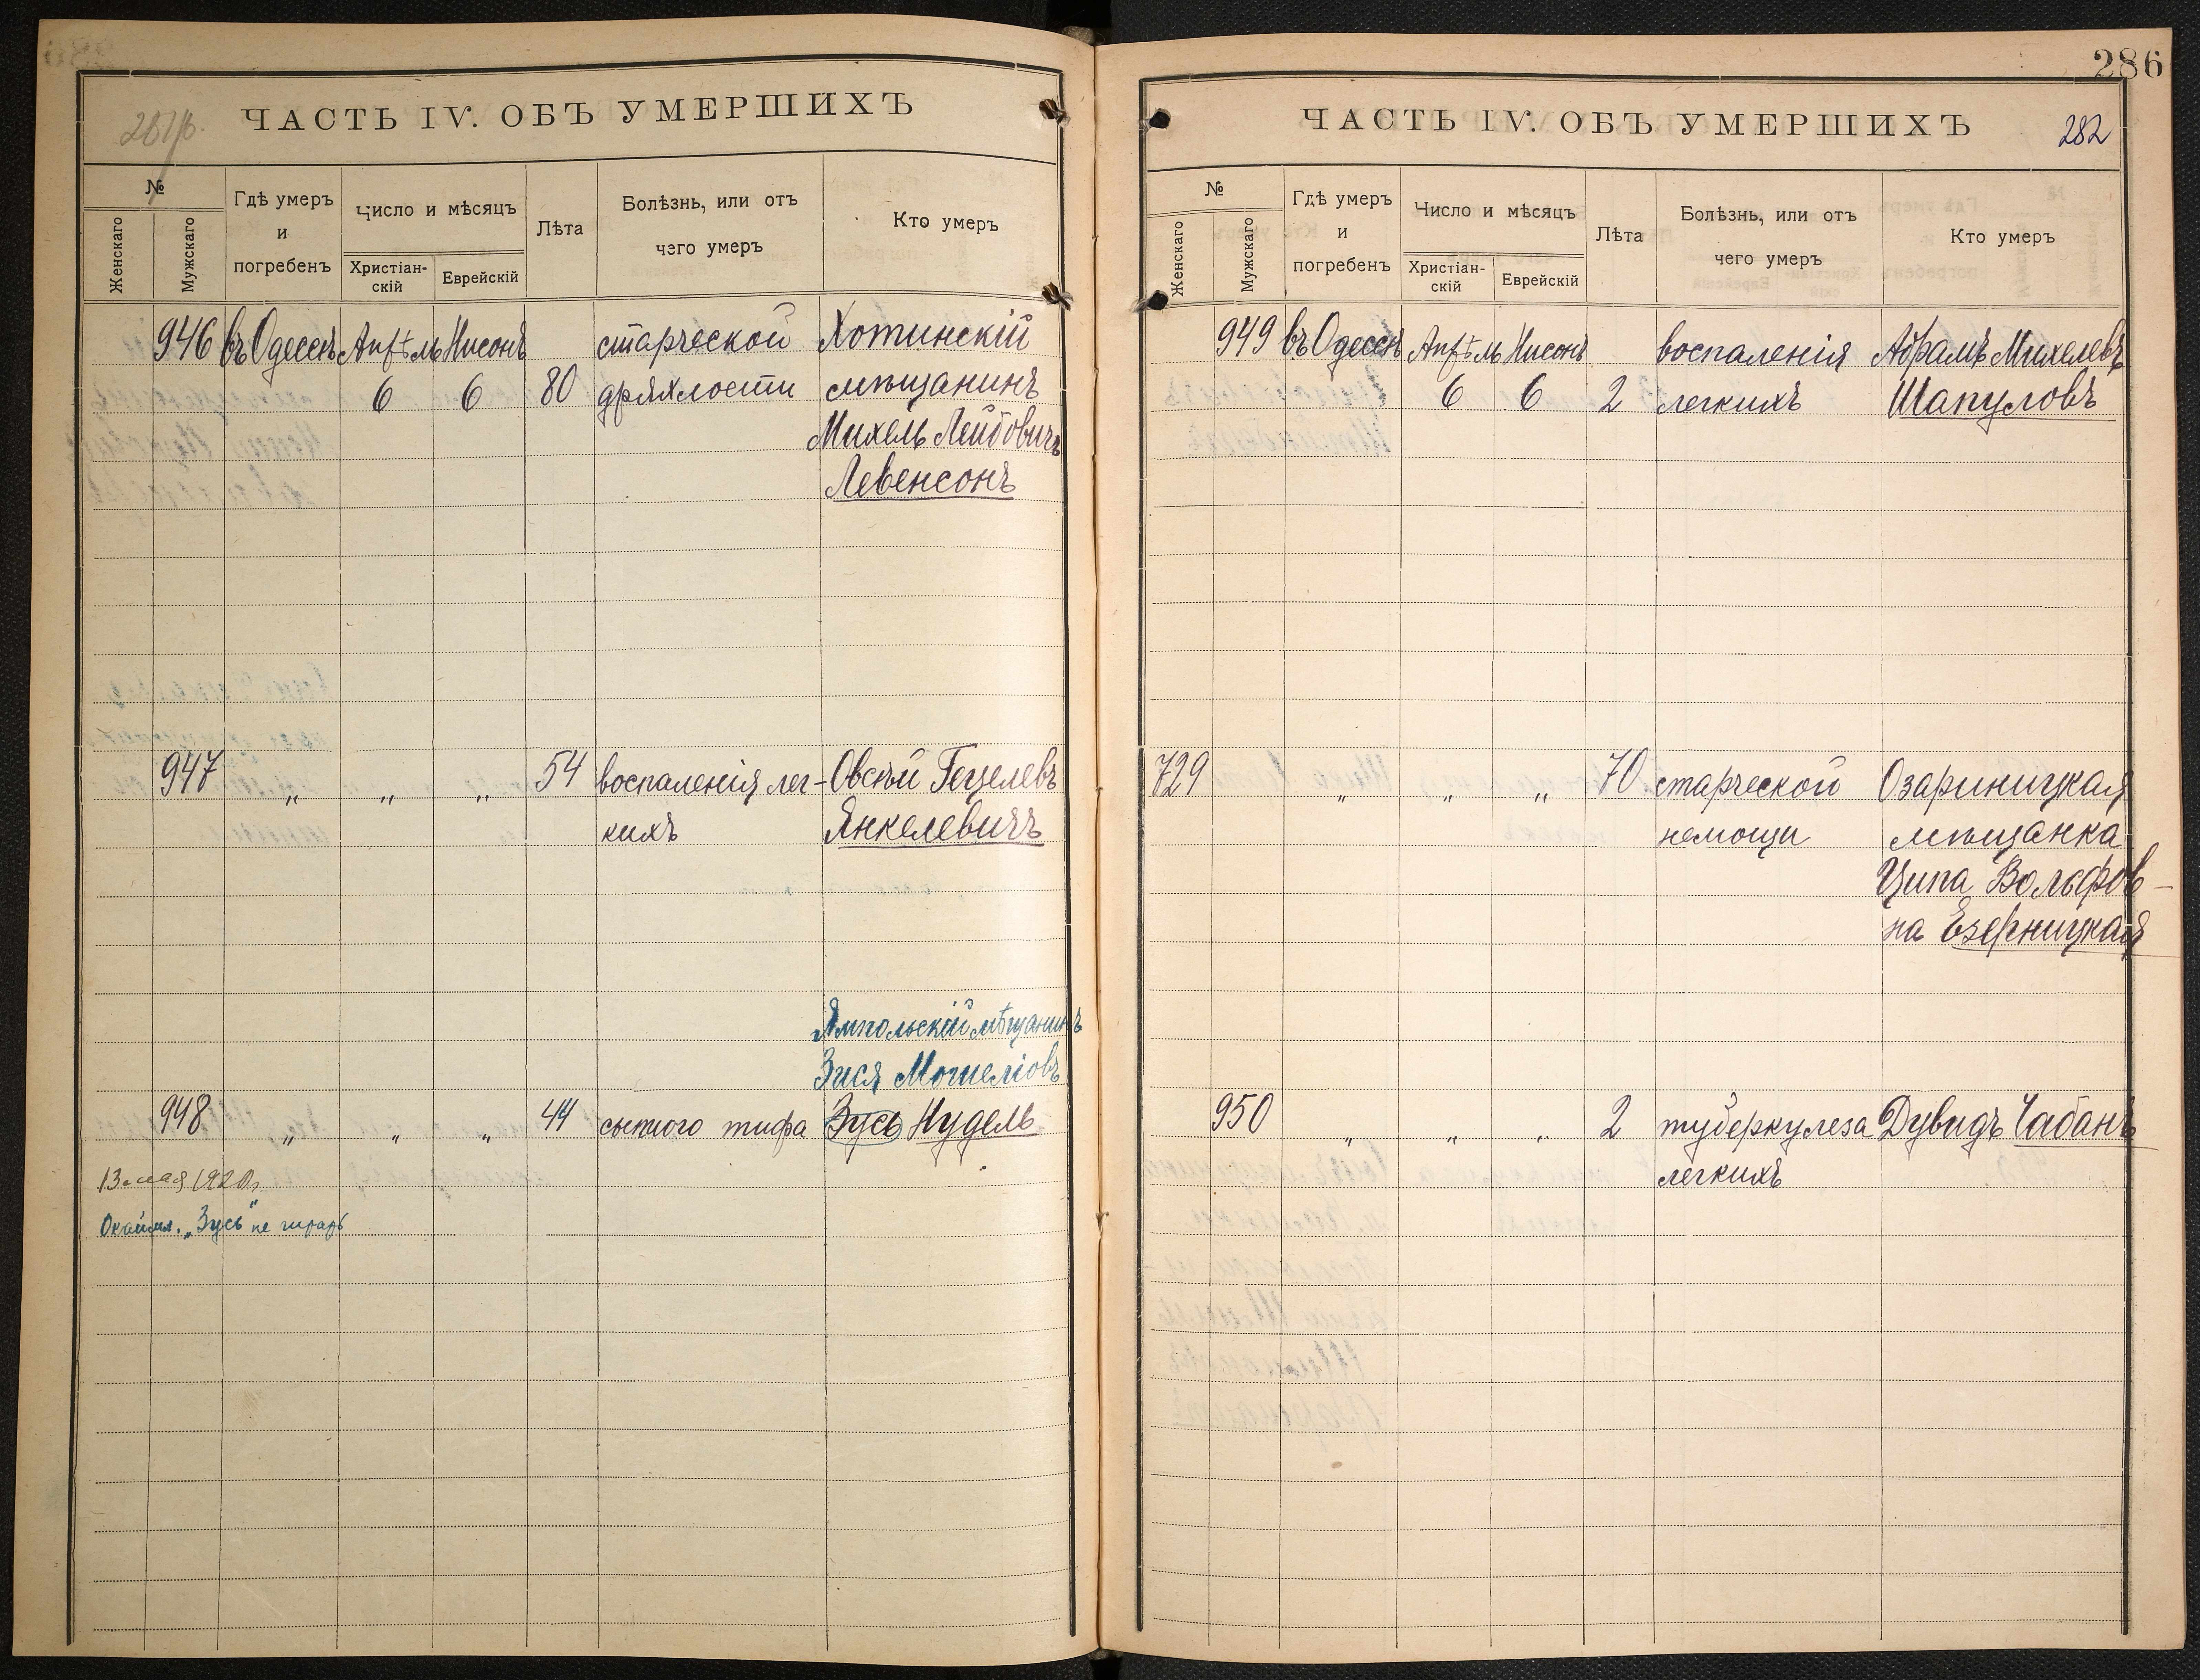 ЧАСТЬ IV. ОБЪ УМЕРШИХЪ
№
Женскаго
Мужскаго
Гдѣ умеръ
и
погребенъ
Число и мѣсяцъ
Христіан-
скій
Еврейскій
Лѣта
Болѣзнь, или отъ
чего умеръ
Кто умеръ
946 въ Одессѣ Апрѣль Нисонъ старческой Хотинскій
6 6 80 дряхлости мѣщанинъ
Михель Лейбовичъ
Левенсонъ
947 " " " 54 воспаленія лег- Овсѣй Гецелевъ
кихъ Янкелевичъ
Ямпольскій мѣщанинъ
Зися Мошеліовъ
948 " " " 44 сыпного тифа Зусь Нудель
13 мая 1920 г.
"Зусь" не
286
ЧАСТЬ IV. ОБЪ УМЕРШИХЪ
282
№
Женскаго
Мужскаго
Гдѣ умеръ
и
погребенъ
Число и мѣсяцъ
Христіан-
скій
Еврейскій
Лѣта
Болѣзнь, или отъ
чего умеръ
Кто умеръ
949 въ Одессѣ Апрѣль Нисонъ воспаленія Абрамъ Михелевъ
6 6 2 легкихъ Шапуловъ
729 " " " 70 старческой Озариницкая
немощи мѣщанка
Ципа Вольфов-
на Езерницкая
950 " " " 2 туберкулеза Дувидъ Чабанъ
легкихъ